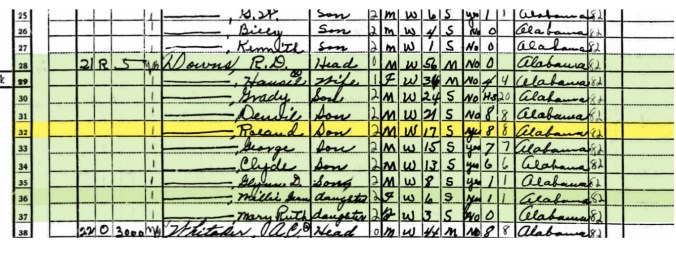 25 S.W. Son 2 M W 6 S yes 1 1 Alabama 82
26 Billy Son 2 M W 4 S No 0 Alabama 82
27 Son 2 M W 1 S No 0 Alabama 82
28 21 R 5 Downs, R.D. Head 0 M W 56 M No 0 Alabama 82
29 Wife 1 F W M No 4 4 Alabama 82
30 Grady Son 2 M W 24 S No H3 20 Alabama 82
31 Son 2 M W 21 S No 8 8 Alabama 82
32 Roland Son 2 M W 17 S yes 8 8 Alabama 82
33 George Son 2 M W 15 S yes 7 7 Alabama 82
34 Clyde Son 2 M W 13 S yes 6 6 Alabama 82
35 Glynn D. Son 2 M W 8 S yes 1 1 Alabama 82
36 daughter 2 F W 6 S yes 1 1 Alabama 82
37 Mary Ruth daughter 2 F W 3 S No 0 Alabama 82
38 22 O 3000 Whitaker, A.C. Head 0 M W 44 M No 8 8 Alabama 82